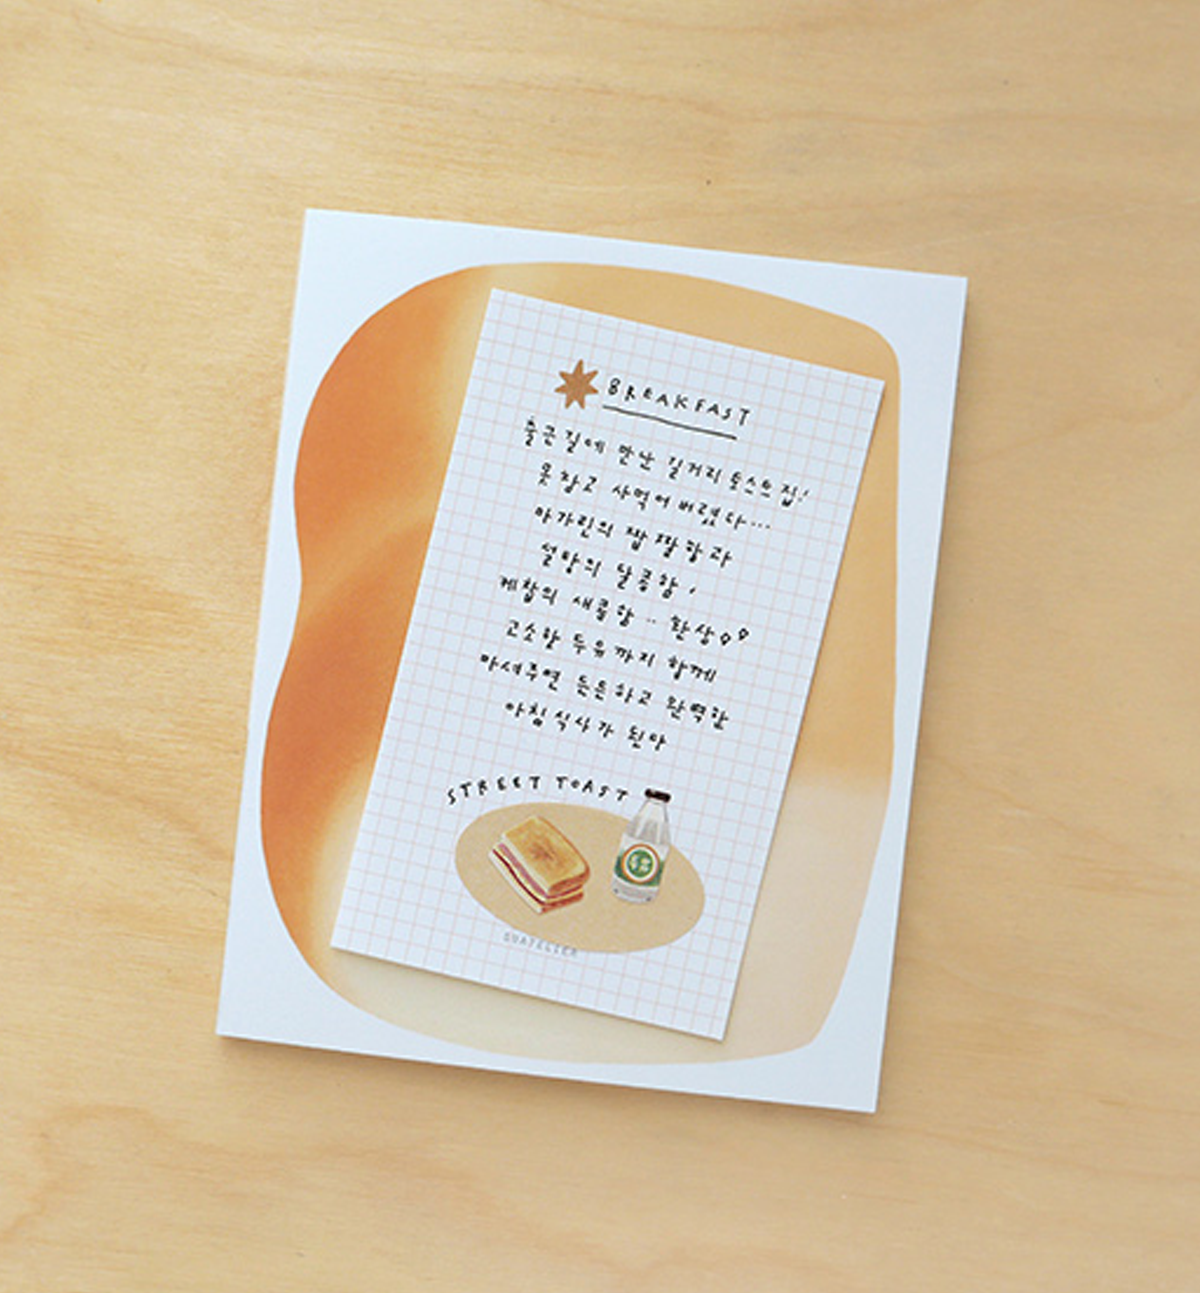 BREAKFAST
출근길에 만난 길거리 토스트집!
못참고 사먹어버렸다...
마가린의 짭짤함과
설탕의 달콤함,
케찹의 새콤함.. 환상
고소한 두유까지 함께
마셔주면 든든하고 완벽한
아침식사가 된다
STREET TOAST
SUATELIER